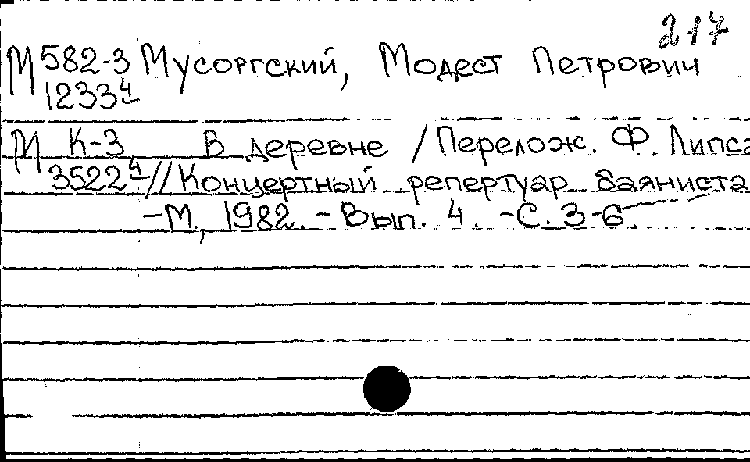 217
М 582-3 Мусоргский, Модест Петрович
12334
М К-3 В деревне / Перелож. Ф. Липса
35224 // Концертный репертуар баяниста
- М., 1982. - Вып. 4. - С. 3-6.